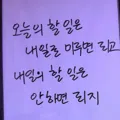 오늘의 할 일은
내일로 미루면 되고
내일의 할 일은
안하면 되지